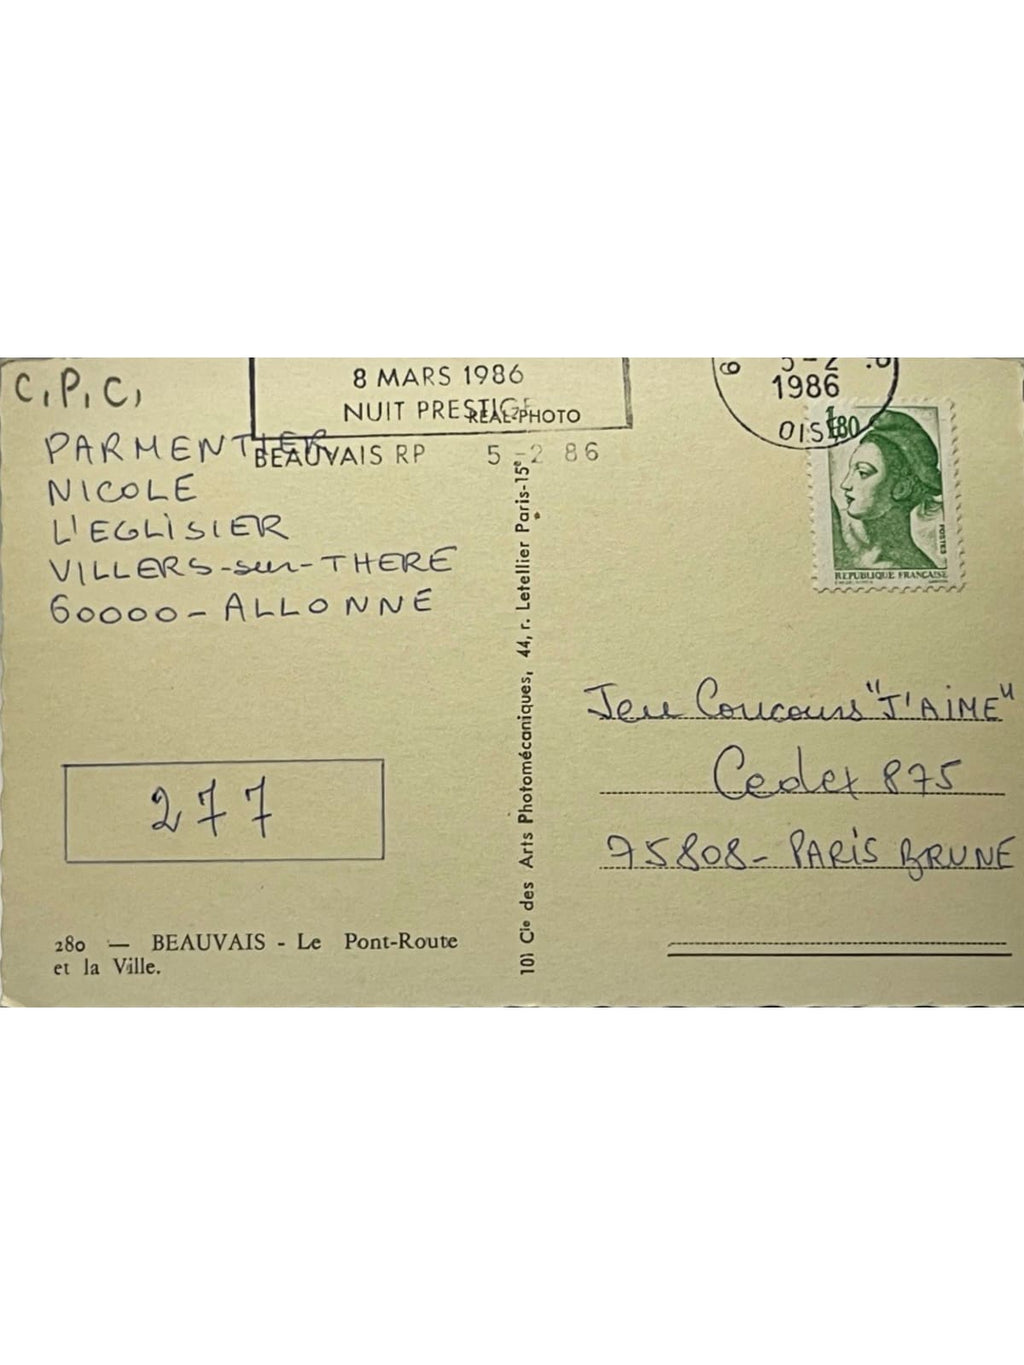 C.P.C.
8 MARS 1986
NUIT PRESTIGE
REAL-PHOTO
BEAUVAIS RP 5-2 86
PARMENTIER
NICOLE
L'EGLISIER
VILLERS-sur-THERE
60000-ALLONNE
277
280 — BEAUVAIS - Le Pont-Route
et la Ville.
101 Cie des Arts Photomécaniques, 44, r. Letellier Paris-15e
5-2
1986
OISE
1,80
POSTES
REPUBLIQUE FRANÇAISE
Jeu Concours "J'AIME"
Cedex 875
75808- PARIS BRUNE